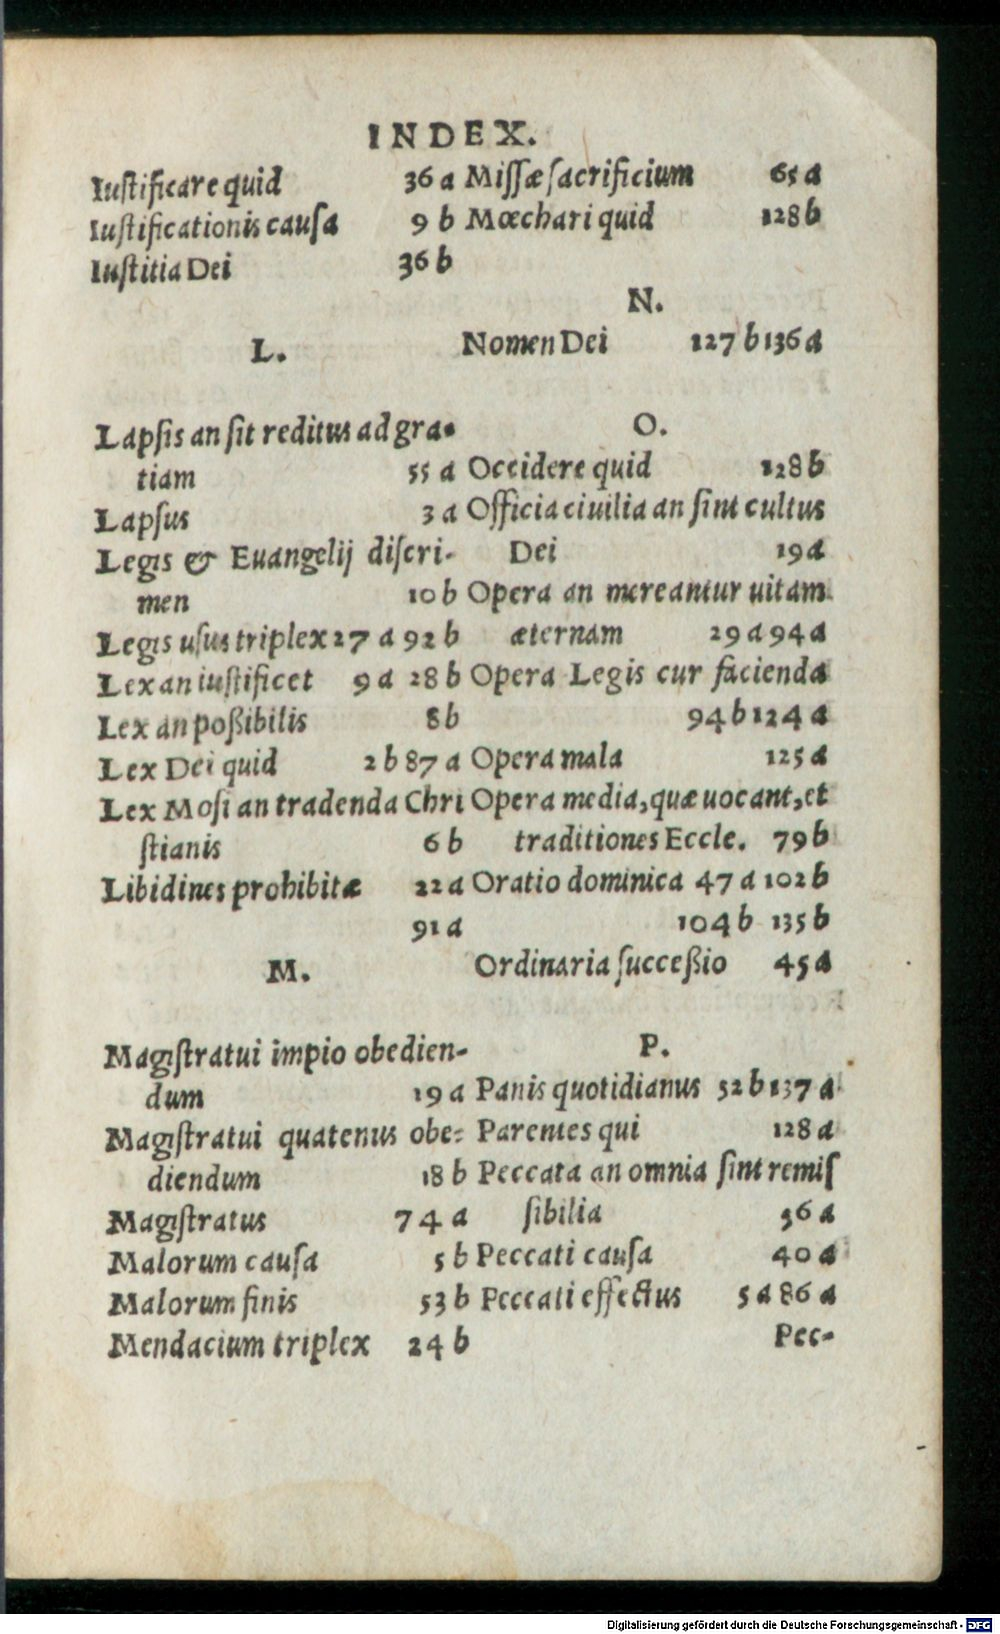 INDEX.
Iustificare quid 36 a
Iustificationis causa 9 b
Iustitia Dei 36 b
L.
Lapsis an sit reditus ad gra-
tiam 55 a
Lapsus 3 a
Legis & Euangelij discri-
men 10 b
Legis usus triplex 27 a 92 b
Lex an iustificet 9 a 28 b
Lex an poßibilis 8 b
Lex Dei quid 2 b 87 a
Lex Mosi an tradenda Chri
stianis 6 b
Libidines prohibitæ 22 a
91 a
M.
Magistratui impio obedien-
dum 19 a
Magistratui quatenus obe-
diendum 18 b
Magistratus 74 a
Malorum causa 5 b
Malorum finis 53 b
Mendacium triplex 24 b
Missæ sacrificium 65 a
Mœchari quid 128 b
N.
Nomen Dei 127 b 136 a
O.
Occidere quid 128 b
Officia ciuilia an sint cultus
Dei 19 a
Opera an mereantur uitam
æternam 29 a 94 a
Opera Legis cur facienda
94 b 124 a
Opera mala 125 a
Opera media, quæ uocant, et
traditiones Eccle. 79 b
Oratio dominica 47 a 102 b
104 b 135 b
Ordinaria succeßio 45 a
P.
Panis quotidianus 52 b 137 a
Parentes qui 128 a
Peccata an omnia sint remis
sibilia 56 a
Peccati causa 40 a
Peccati effectus 5 a 86 a
Pec-
Digitalisierung gefördert durch die Deutsche Forschungsgemeinschaft - DFG